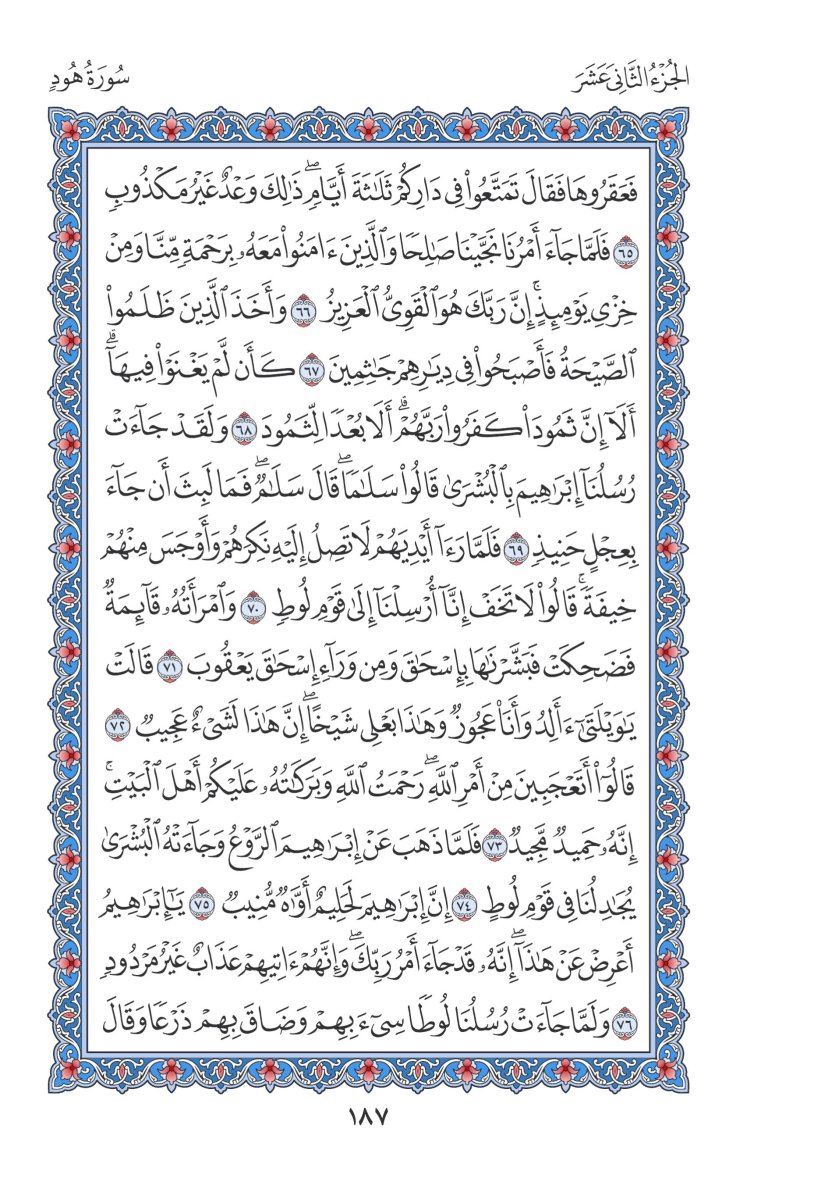 الجُزْءُ الثَّانِيَ عَشَرَ
سُورَةُ هُودٍ
فَعَقَرُوهَا فَقَالَ تَمَتَّعُوا۟ فِى دَارِكُمْ ثَلَٰثَةَ أَيَّامٍۢ ۖ ذَٰلِكَ وَعْدٌ غَيْرُ مَكْذُوبٍۢ
٦٥ فَلَمَّا جَآءَ أَمْرُنَا نَجَّيْنَا صَٰلِحًۭا وَٱلَّذِينَ ءَامَنُوا۟ مَعَهُۥ بِرَحْمَةٍۢ مِّنَّا وَمِنْ
خِزْىِ يَوْمِئِذٍ ۚ إِنَّ رَبَّكَ هُوَ ٱلْقَوِىُّ ٱلْعَزِيزُ ٦٦ وَأَخَذَ ٱلَّذِينَ ظَلَمُوا۟
ٱلصَّيْحَةُ فَأَصْبَحُوا۟ فِى دِيَٰرِهِمْ جَٰثِمِينَ ٦٧ كَأَن لَّمْ يَغْنَوْا۟ فِيهَآ ۗ
أَلَآ إِنَّ ثَمُودَا۟ كَفَرُوا۟ رَبَّهُمْ ۗ أَلَا بُعْدًۭا لِّثَمُودَ ٦٨ وَلَقَدْ جَآءَتْ
رُسُلُنَآ إِبْرَٰهِيمَ بِٱلْبُشْرَىٰ قَالُوا۟ سَلَٰمًۭا ۖ قَالَ سَلَٰمٌۭ ۖ فَمَا لَبِثَ أَن جَآءَ
بِعِجْلٍ حَنِيذٍۢ ٦٩ فَلَمَّا رَءَآ أَيْدِيَهُمْ لَا تَصِلُ إِلَيْهِ نَكِرَهُمْ وَأَوْجَسَ مِنْهُمْ
خِيفَةًۭ ۚ قَالُوا۟ لَا تَخَفْ إِنَّآ أُرْسِلْنَآ إِلَىٰ قَوْمِ لُوطٍۢ ٧٠ وَٱمْرَأَتُهُۥ قَآئِمَةٌۭ
فَضَحِكَتْ فَبَشَّرْنَٰهَا بِإِسْحَٰقَ وَمِن وَرَآءِ إِسْحَٰقَ يَعْقُوبَ ٧١ قَالَتْ
يَٰوَيْلَتَىٰٓ ءَأَلِدُ وَأَنَا۠ عَجُوزٌۭ وَهَٰذَا بَعْلِى شَيْخًا ۖ إِنَّ هَٰذَا لَشَىْءٌ عَجِيبٌۭ ٧٢
قَالُوٓا۟ أَتَعْجَبِينَ مِنْ أَمْرِ ٱللَّهِ ۖ رَحْمَتُ ٱللَّهِ وَبَرَكَٰتُهُۥ عَلَيْكُمْ أَهْلَ ٱلْبَيْتِ ۚ
إِنَّهُۥ حَمِيدٌۭ مَّجِيدٌۭ ٧٣ فَلَمَّا ذَهَبَ عَنْ إِبْرَٰهِيمَ ٱلرَّوْعُ وَجَآءَتْهُ ٱلْبُشْرَىٰ
يُجَٰدِلُنَا فِى قَوْمِ لُوطٍ ٧٤ إِنَّ إِبْرَٰهِيمَ لَحَلِيمٌ أَوَّٰهٌۭ مُّنِيبٌۭ ٧٥ يَٰٓإِبْرَٰهِيمُ
أَعْرِضْ عَنْ هَٰذَآ ۖ إِنَّهُۥ قَدْ جَآءَ أَمْرُ رَبِّكَ ۖ وَإِنَّهُمْ ءَاتِيهِمْ عَذَابٌ غَيْرُ مَرْدُودٍۢ
٧٦ وَلَمَّا جَآءَتْ رُسُلُنَا لُوطًۭا سِىٓءَ بِهِمْ وَضَاقَ بِهِمْ ذَرْعًۭا وَقَالَ
١٨٧